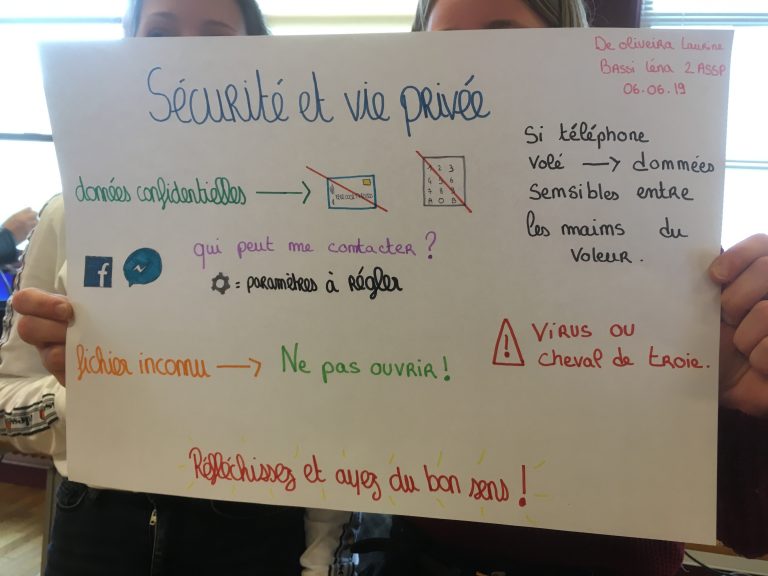 De oliveira Laurine
Bassi Léna 2 ASSP
06.06.19
Sécurité et vie privée
Si téléphone
volé → données
sensibles entre
les mains du
voleur.
données confidentielles →
1 2 3
4 5 6
7 8 9
A 0 B
qui peut me contacter ?
f
= paramètres à régler
Virus ou
cheval de troie.
fichier inconnu → Ne pas ouvrir !
Réfléchissez et ayez du bon sens !